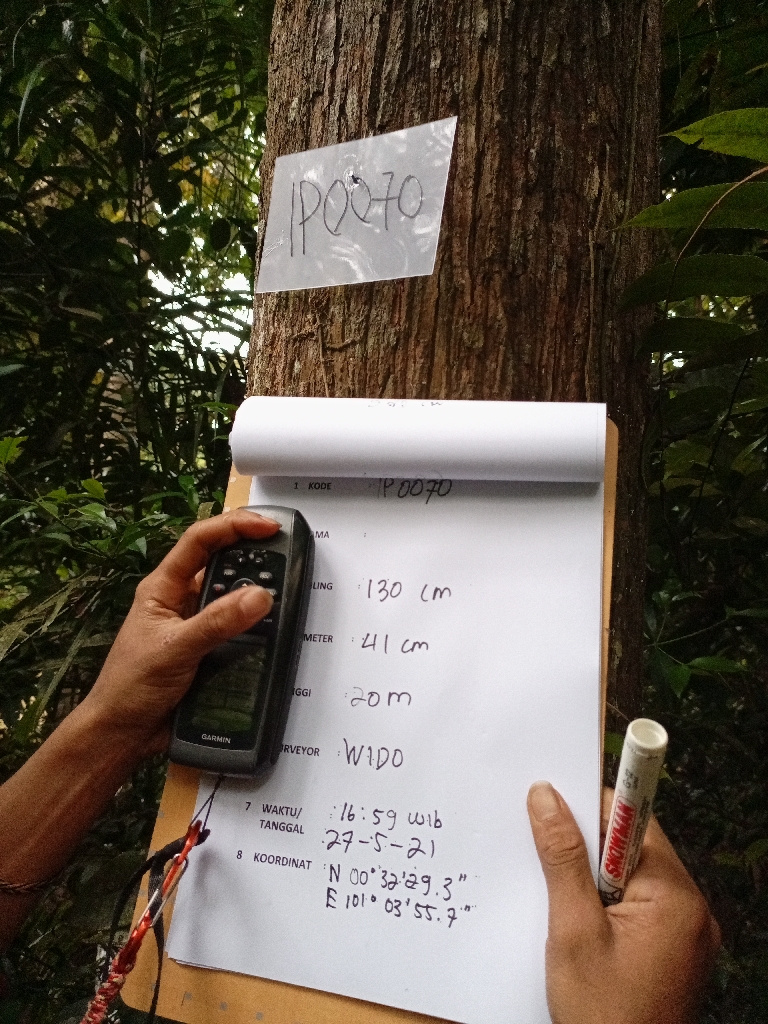 IP0070
1 KODE : IP0070
AMA :
LING : 130 cm
METER : 41 cm
GGI : 20 m
RVEYOR : WIDO
7 WAKTU/ : 16:59 wib
TANGGAL 27-5-21
8 KOORDINAT : N 00° 32' 29.3"
E 101° 03' 55.7"
GARMIN
SNOWMAN